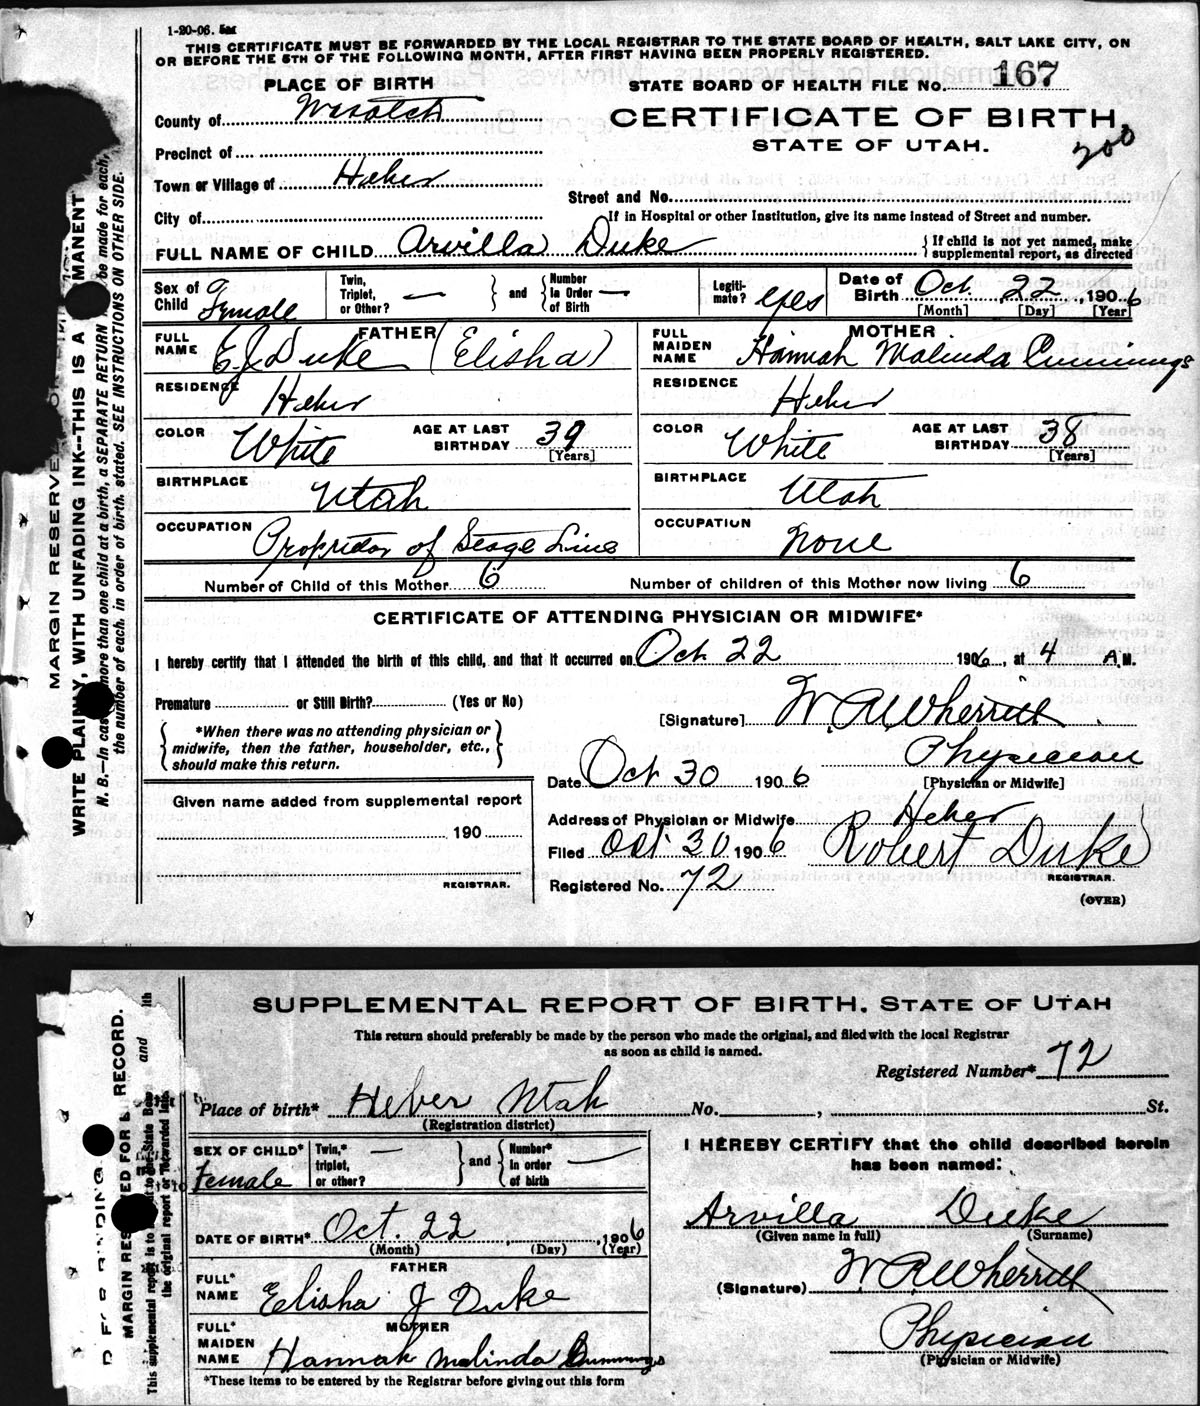 1-20-06.
THIS CERTIFICATE MUST BE FORWARDED BY THE LOCAL REGISTRAR TO THE STATE BOARD OF HEALTH, SALT LAKE CITY, ON
OR BEFORE THE 5TH OF THE FOLLOWING MONTH, AFTER FIRST HAVING BEEN PROPERLY REGISTERED.
PLACE OF BIRTH
STATE BOARD OF HEALTH FILE NO. 167
County of Wasatch
CERTIFICATE OF BIRTH,
STATE OF UTAH.
200
Precinct of
Town or Village of Heber
Street and No.
City of
If in Hospital or other Institution, give its name instead of Street and number.
FULL NAME OF CHILD Arvilla Duke { If child is not yet named, make supplemental report, as directed
Sex of Child Female Twin, Triplet, or Other? — } and { Number In Order of Birth — Legiti-mate? yes Date of Birth Oct 22, 1906
[Month] [Day] [Year]
FATHER
FULL NAME E J Duke (Elisha)
MOTHER
FULL MAIDEN NAME Hannah Malinda Cummings
RESIDENCE Heber
RESIDENCE Heber
COLOR White AGE AT LAST BIRTHDAY 39 [Years]
COLOR White AGE AT LAST BIRTHDAY 38 [Years]
BIRTHPLACE Utah
BIRTHPLACE Utah
OCCUPATION Propridor of Stage Line
OCCUPATION None
Number of Child of this Mother 6 Number of children of this Mother now living 6
CERTIFICATE OF ATTENDING PHYSICIAN OR MIDWIFE*
I hereby certify that I attended the birth of this child, and that it occurred on Oct 22 1906, at 4 A.M.
Premature or Still Birth? (Yes or No)
[Signature] W R Wherritt
{ *When there was no attending physician or midwife, then the father, householder, etc., should make this return. }
Physician
Date Oct 30 1906 [Physician or Midwife]
Given name added from supplemental report
190
REGISTRAR.
Address of Physician or Midwife Heber
Filed Oct 30 1906 Robert Duke
REGISTRAR.
Registered No. 72
(OVER)
MARGIN RESERVE
WRITE PLAINLY, WITH UNFADING INK--THIS IS A MANENT
N. B.—In cas more than one child at a birth, a SEPARATE RETURN be made for each,
the number of each, in order of birth, stated. SEE INSTRUCTIONS ON OTHER SIDE.
SUPPLEMENTAL REPORT OF BIRTH, STATE OF UTAH
This return should preferably be made by the person who made the original, and filed with the local Registrar
as soon as child is named.
Registered Number* 72
Place of birth* Heber Utah No. , St.
(Registration district)
SEX OF CHILD* Female Twin,* triplet, or other? — } and { Number* in order of birth —
I HEREBY CERTIFY that the child described herein
has been named:
Arvilla Duke
(Given name in full) (Surname)
DATE OF BIRTH* Oct. 22, 1906
(Month) (Day) (Year)
FATHER
FULL* NAME Elisha J Duke
(Signature) W R Wherritt
MOTHER
FULL* MAIDEN NAME Hannah Malinda Cummings
Physician
(Physician or Midwife)
*These items to be entered by the Registrar before giving out this form
MARGIN RES VED FOR RECORD.
This supplemental report is to
the original report or forwarded